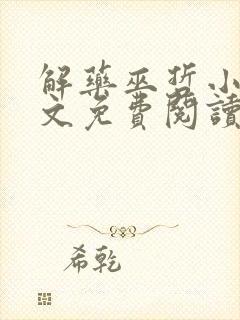 解藥巫哲小
文免費閱讀
希乾